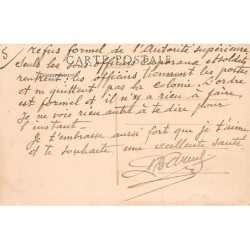 refus formel de l'Autorité supérieure
CARTE POSTALE
Seuls les
rentrent; les officiers les postes
et ne quittent pas la colonie. L'ordre
est formel et il n'y a rien à faire.
Je ne vois rien autre à te dire pour
l'instant.
Je t'embrasse aussi fort que je t'aime
et te souhaite une excellente santé.